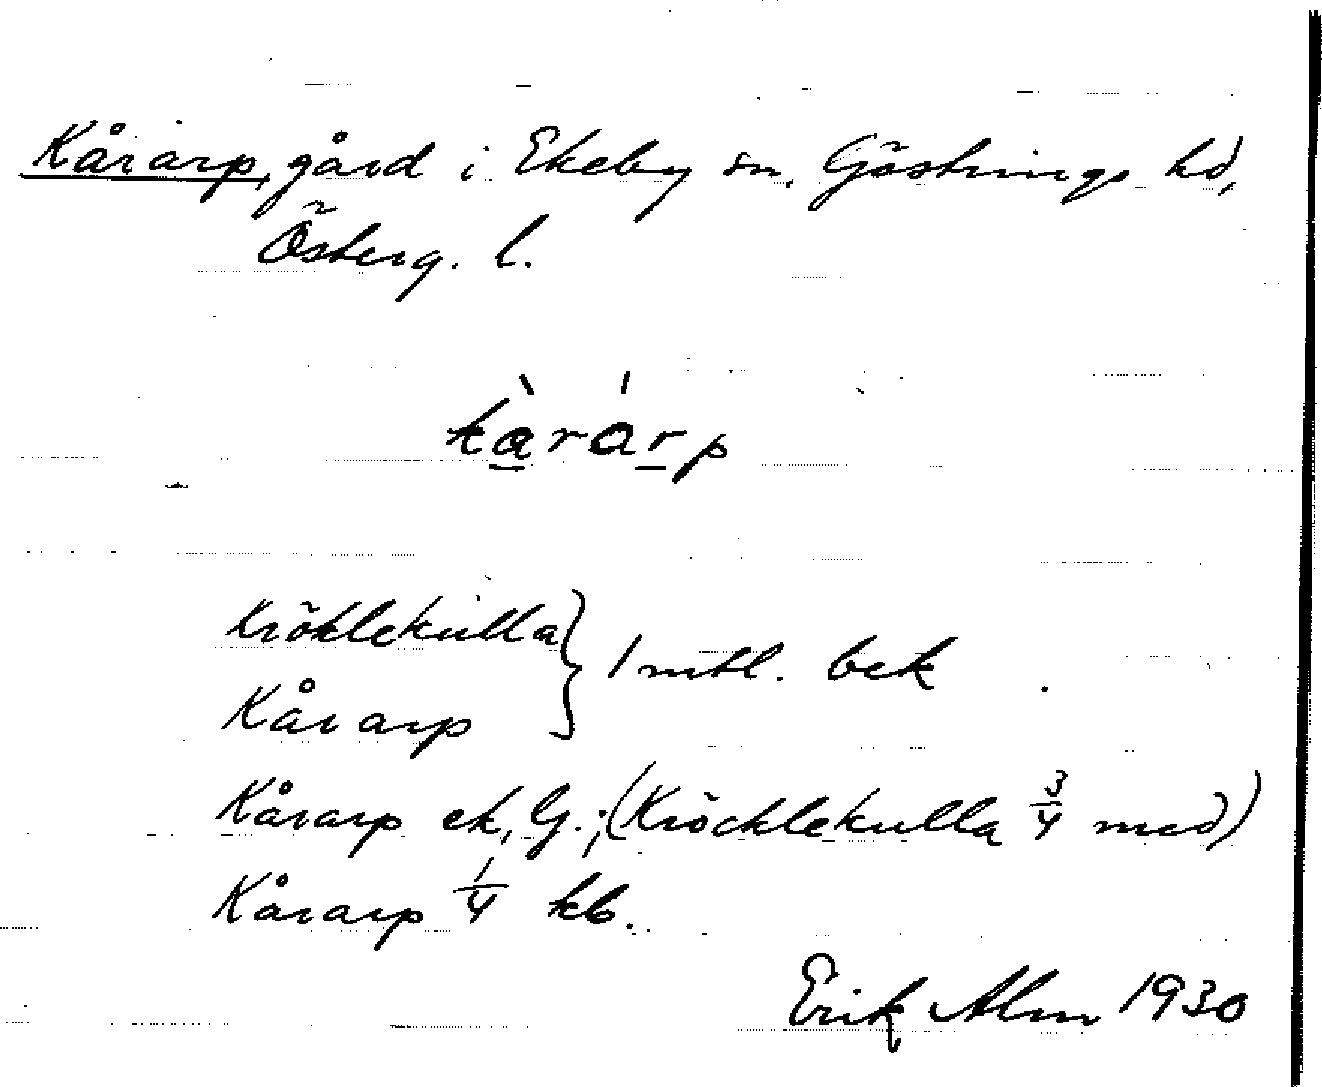 Kårarp, gård i Ekeby sn. Göstrings hd,
Österg. l.
kàrárp
Kröklekulla } 1 mtl. bek
Kårarp
Kårarp ek, G.; (Kröcklekulla 3/4 med)
Kårarp 1/4 kb.
Erik Alm 1930